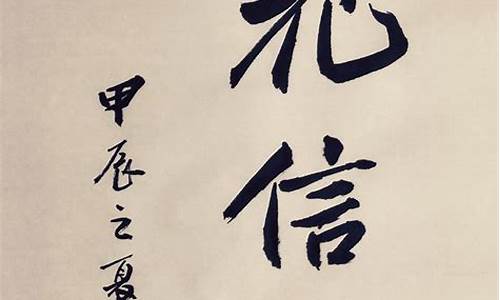 信
甲辰之夏